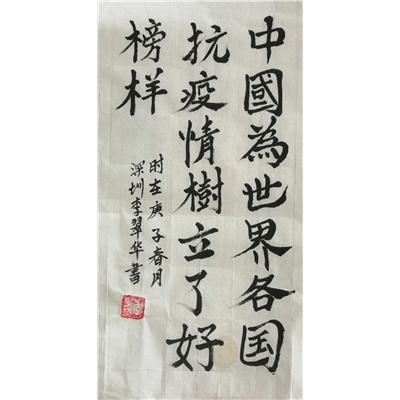 中國為世界各国
抗疫情樹立了好
榜样
时在庚子春月
深圳李翠华書